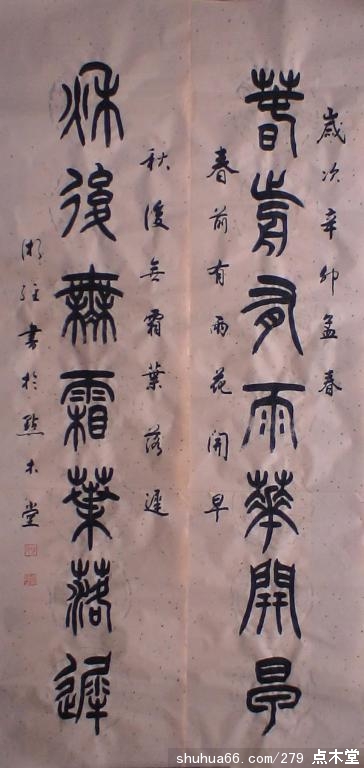 歲次辛卯孟春
春歬有雨華開早
春前有雨花開早
秋後無霜葉落遲
秋後無霜葉落遲
書於點木堂
shuhua66.com/279 点木堂